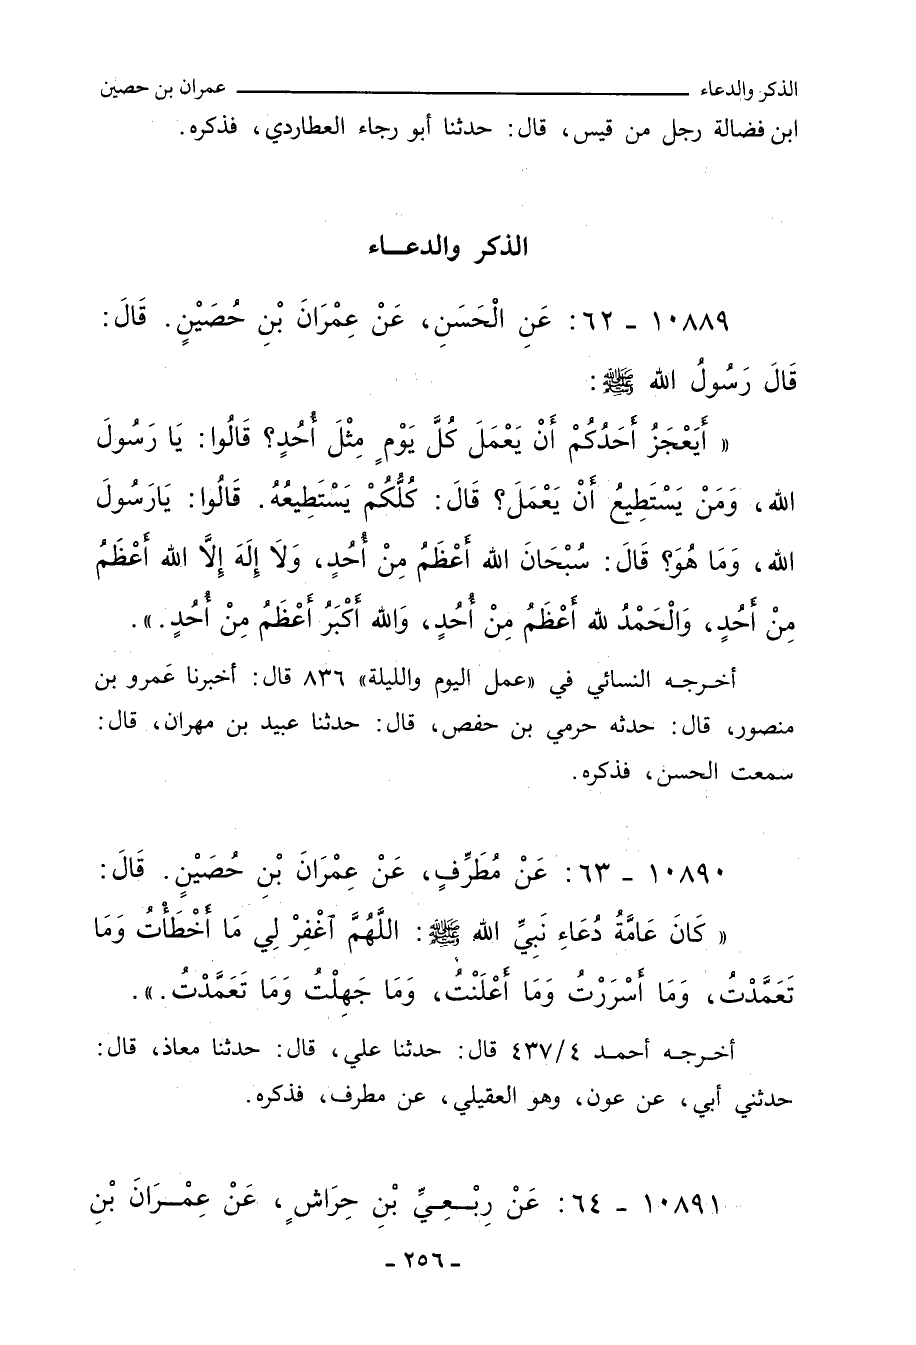 الذكر والدعاء ــــــــــــــــ عمران بن حصين
ابن فضالة رجل من قيس، قال: حدثنا أبو رجاء العطاردي، فذكره.
الذكر والدعـــاء
١٠٨٨٩ - ٦٢: عَنِ الْحَسَنِ، عَنْ عِمْرَانَ بْنِ حُصَيْنٍ. قَالَ:
قَالَ رَسُولُ الله ﷺ:
« أَيَعْجَزُ أَحَدُكُمْ أَنْ يَعْمَلَ كُلَّ يَوْمٍ مِثْلَ أُحُدٍ؟ قَالُوا: يَا رَسُولَ
الله، وَمَنْ يَسْتَطِيعُ أَنْ يَعْمَلَ؟ قَالَ: كُلُّكُمْ يَسْتَطِيعُهُ. قَالُوا: يَارَسُولَ
الله، وَمَا هُوَ؟ قَالَ: سُبْحَانَ الله أَعْظَمُ مِنْ أُحُدٍ، وَلَا إِلَهَ إِلَّا الله أَعْظَمُ
مِنْ أُحُدٍ، وَالْحَمْدُ لله أَعْظَمُ مِنْ أُحُدٍ، وَالله أَكْبَرُ أَعْظَمُ مِنْ أُحُدٍ.».
أخـرجـه النسائي في «عمل اليوم والليلة» ٨٣٦ قال: أخبرنا عَمرو بن
منصور، قال: حدثه حرمي بن حفص، قال: حدثنا عبيد بن مهران، قال:
سمعت الحسن، فذكره.
١٠٨٩٠ - ٦٣: عَنْ مُطَرِّفٍ، عَنْ عِمْرَانَ بْنِ حُصَيْنٍ. قَالَ:
« كَانَ عَامَّةُ دُعَاءِ نَبِيِّ الله ﷺ: اللَّهُمَّ ٱغْفِرْ لِي مَا أَخْطَأْتُ وَمَا
تَعَمَّدْتُ، وَمَا أَسْرَرْتُ وَمَا أَعْلَنْتُ، وَمَا جَهِلْتُ وَمَا تَعَمَّدْتُ.».
أخـرجـه أحمد ٤٣٧/٤ قال: حدثنا علي، قال: حدثنا معاذ، قال:
حدثني أبي، عن عون، وهو العقيلي، عن مطرف، فذكره.
١٠٨٩١ - ٦٤: عَنْ رِبْـعِـيِّ بْنِ حِرَاشٍ، عَنْ عِمْـرَانَ بْنِ
- ٢٥٦ -